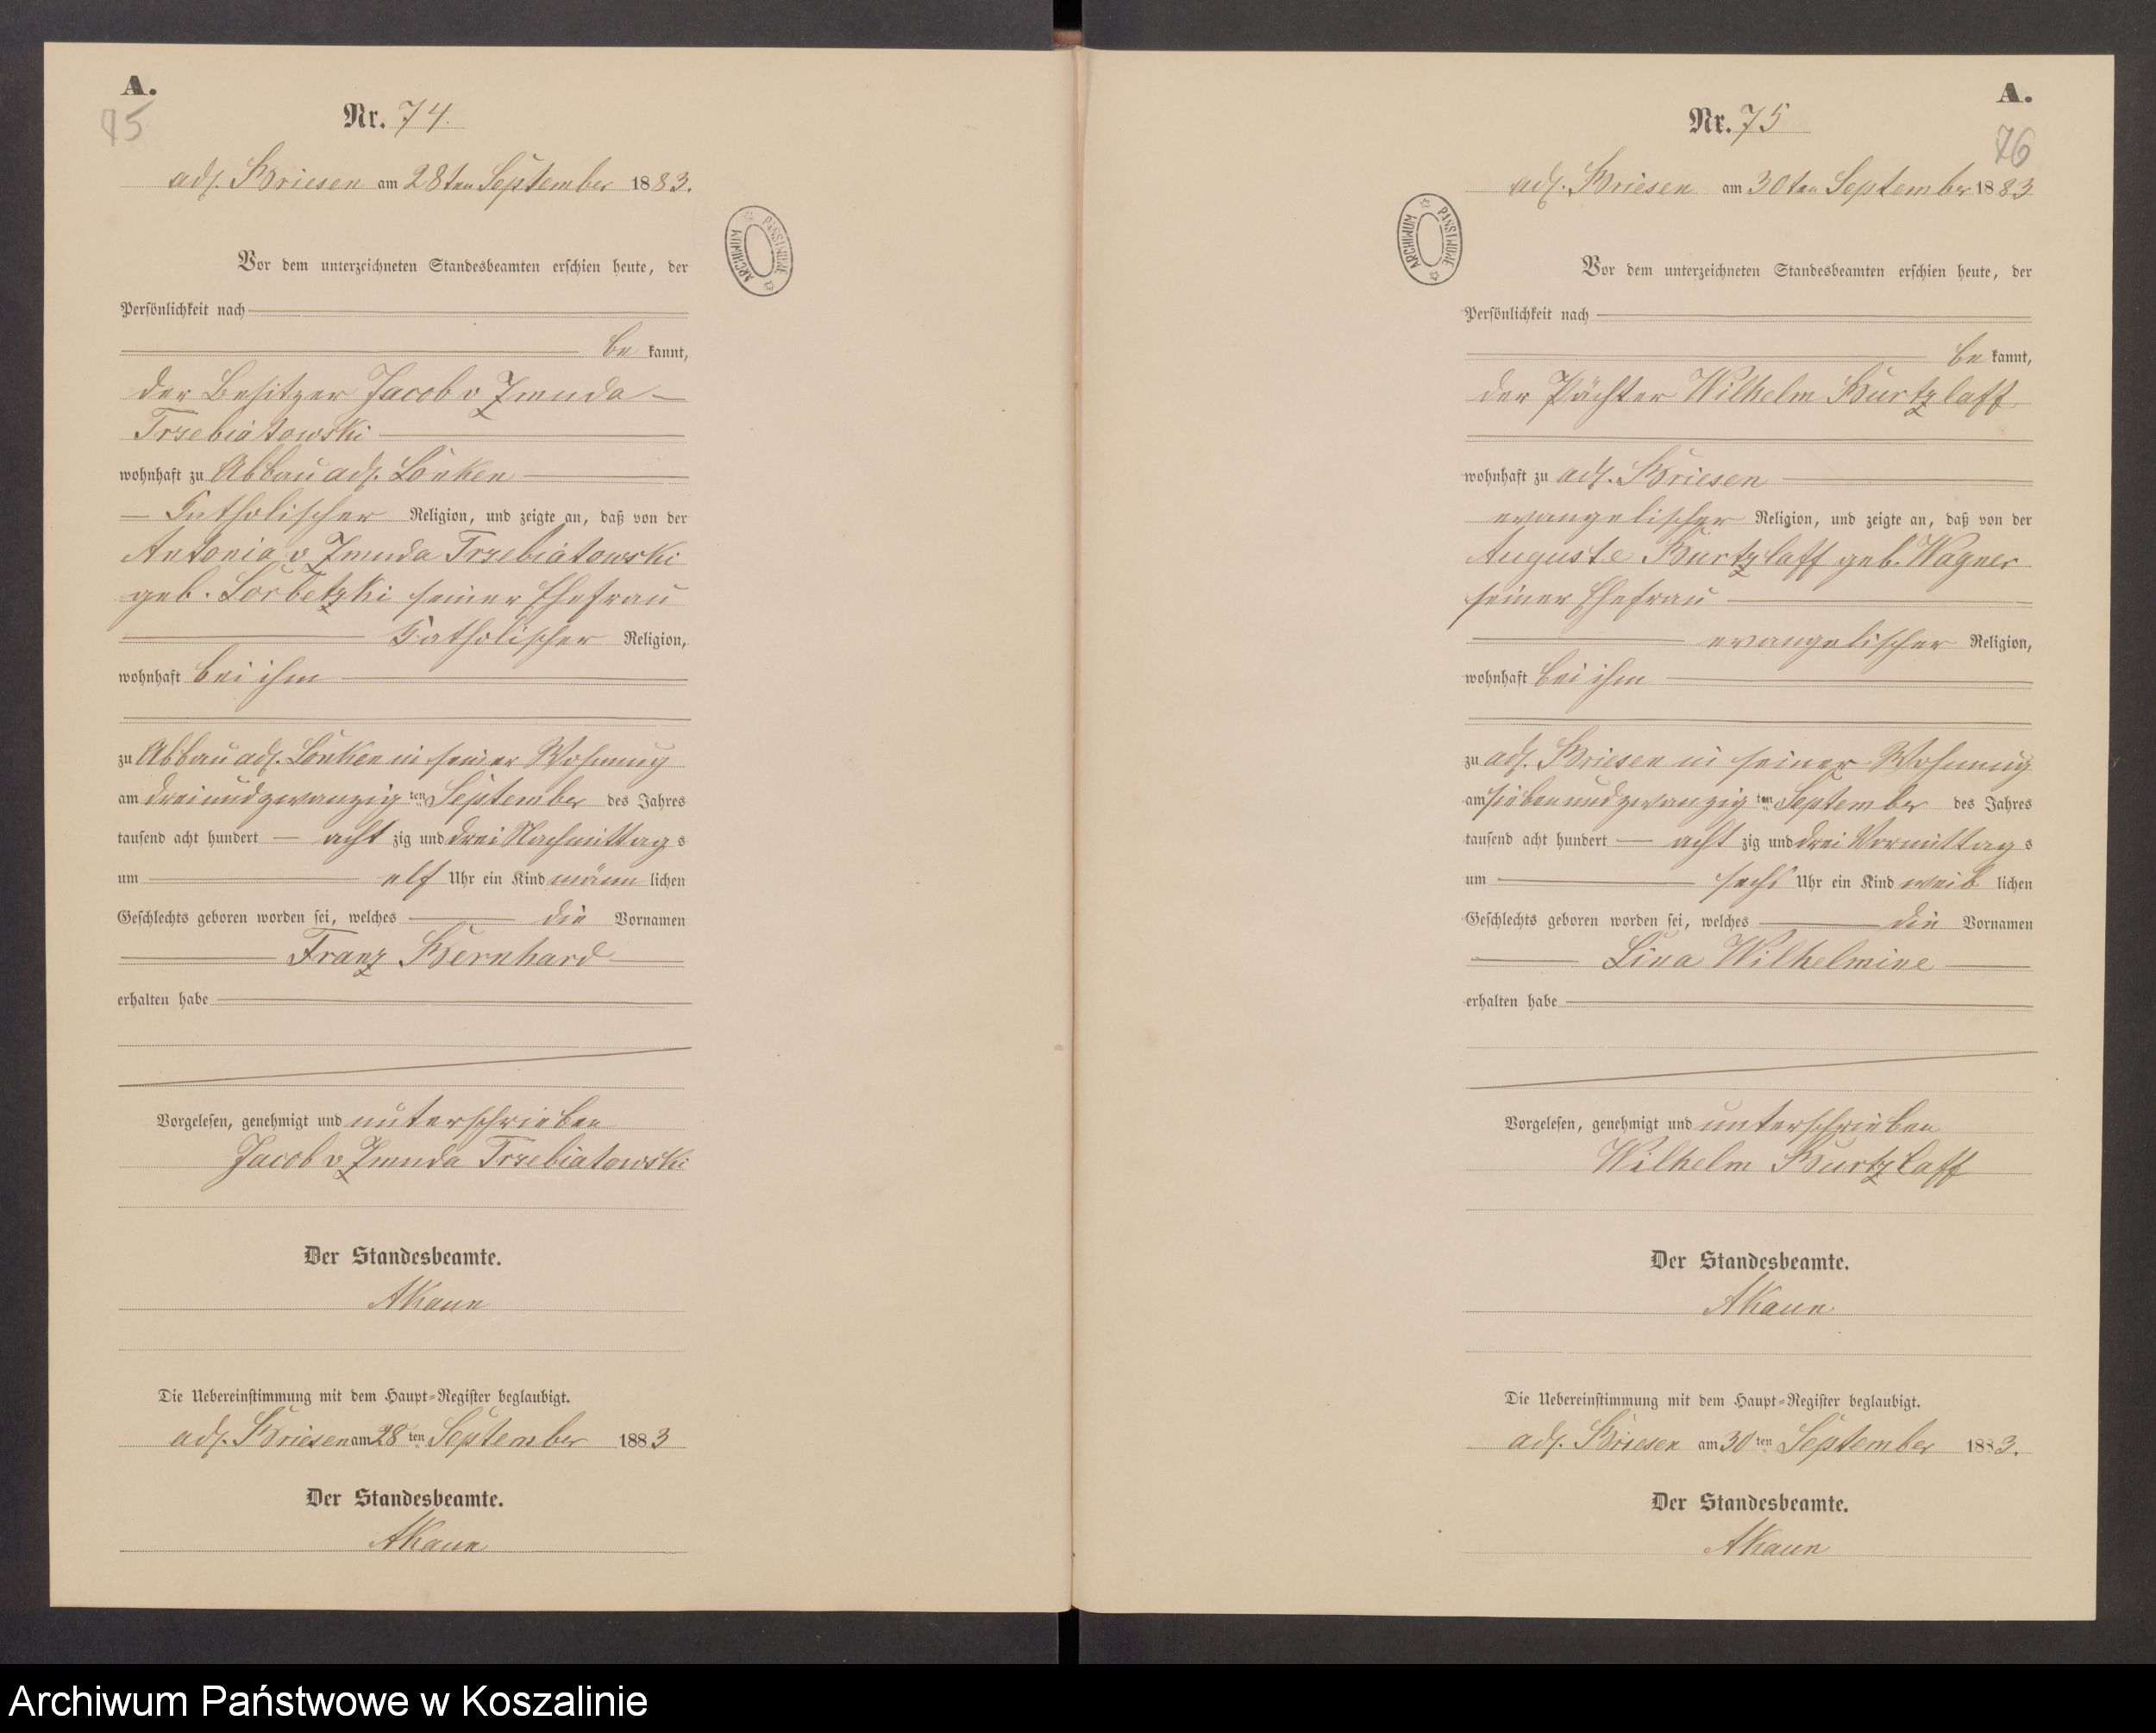 A.
75
Nr. 74.
adl. Briesen am 28ten September 1883.
ARCHIWUM PAŃSTWOWE
Vor dem unterzeichneten Standesbeamten erschien heute, der
Persönlichkeit nach
be kannt,
der Besitzer Jacob v Zmuda
Trzebiatowski
wohnhaft zu Abbau adl. Lonken
katholischer Religion, und zeigte an, daß von der
Antonia v Zmuda Trzebiatowski
geb. Lorbetzki seiner Ehefrau
katholischer Religion,
wohnhaft bei ihm
zu Abbau adl. Lonken in seiner Wohnung
am dreiundzwanzig ten September des Jahres
tausend acht hundert acht zig und drei Nachmittag s
um elf Uhr ein Kind männ lichen
Geschlechts geboren worden sei, welches die Vornamen
Franz Bernhard
erhalten habe
Vorgelesen, genehmigt und unterschrieben
Jacob v Zmuda Trzebiatowski
Der Standesbeamte.
AKaun
Die Uebereinstimmung mit dem Haupt-Register beglaubigt.
adl. Briesen am 28 ten September 1883
Der Standesbeamte.
AKaun
A.
76
Nr. 75
adl. Briesen am 30ten September 1883
ARCHIWUM PAŃSTWOWE
Vor dem unterzeichneten Standesbeamten erschien heute, der
Persönlichkeit nach
be kannt,
der Pächter Wilhelm Burtzlaff
wohnhaft zu adl. Briesen
evangelischer Religion, und zeigte an, daß von der
Auguste Burtzlaff geb. Wagner
seiner Ehefrau
evangelischer Religion,
wohnhaft bei ihm
zu adl. Briesen in seiner Wohnung
am siebenundzwanzig ten September des Jahres
tausend acht hundert acht zig und drei Vormittag s
um sechs Uhr ein Kind weib lichen
Geschlechts geboren worden sei, welches die Vornamen
Lina Wilhelmine
erhalten habe
Vorgelesen, genehmigt und unterschrieben
Wilhelm Burtzlaff
Der Standesbeamte.
AKaun
Die Uebereinstimmung mit dem Haupt-Register beglaubigt.
adl. Briesen am 30 ten September 1883.
Der Standesbeamte.
AKaun
Archiwum Państwowe w Koszalinie